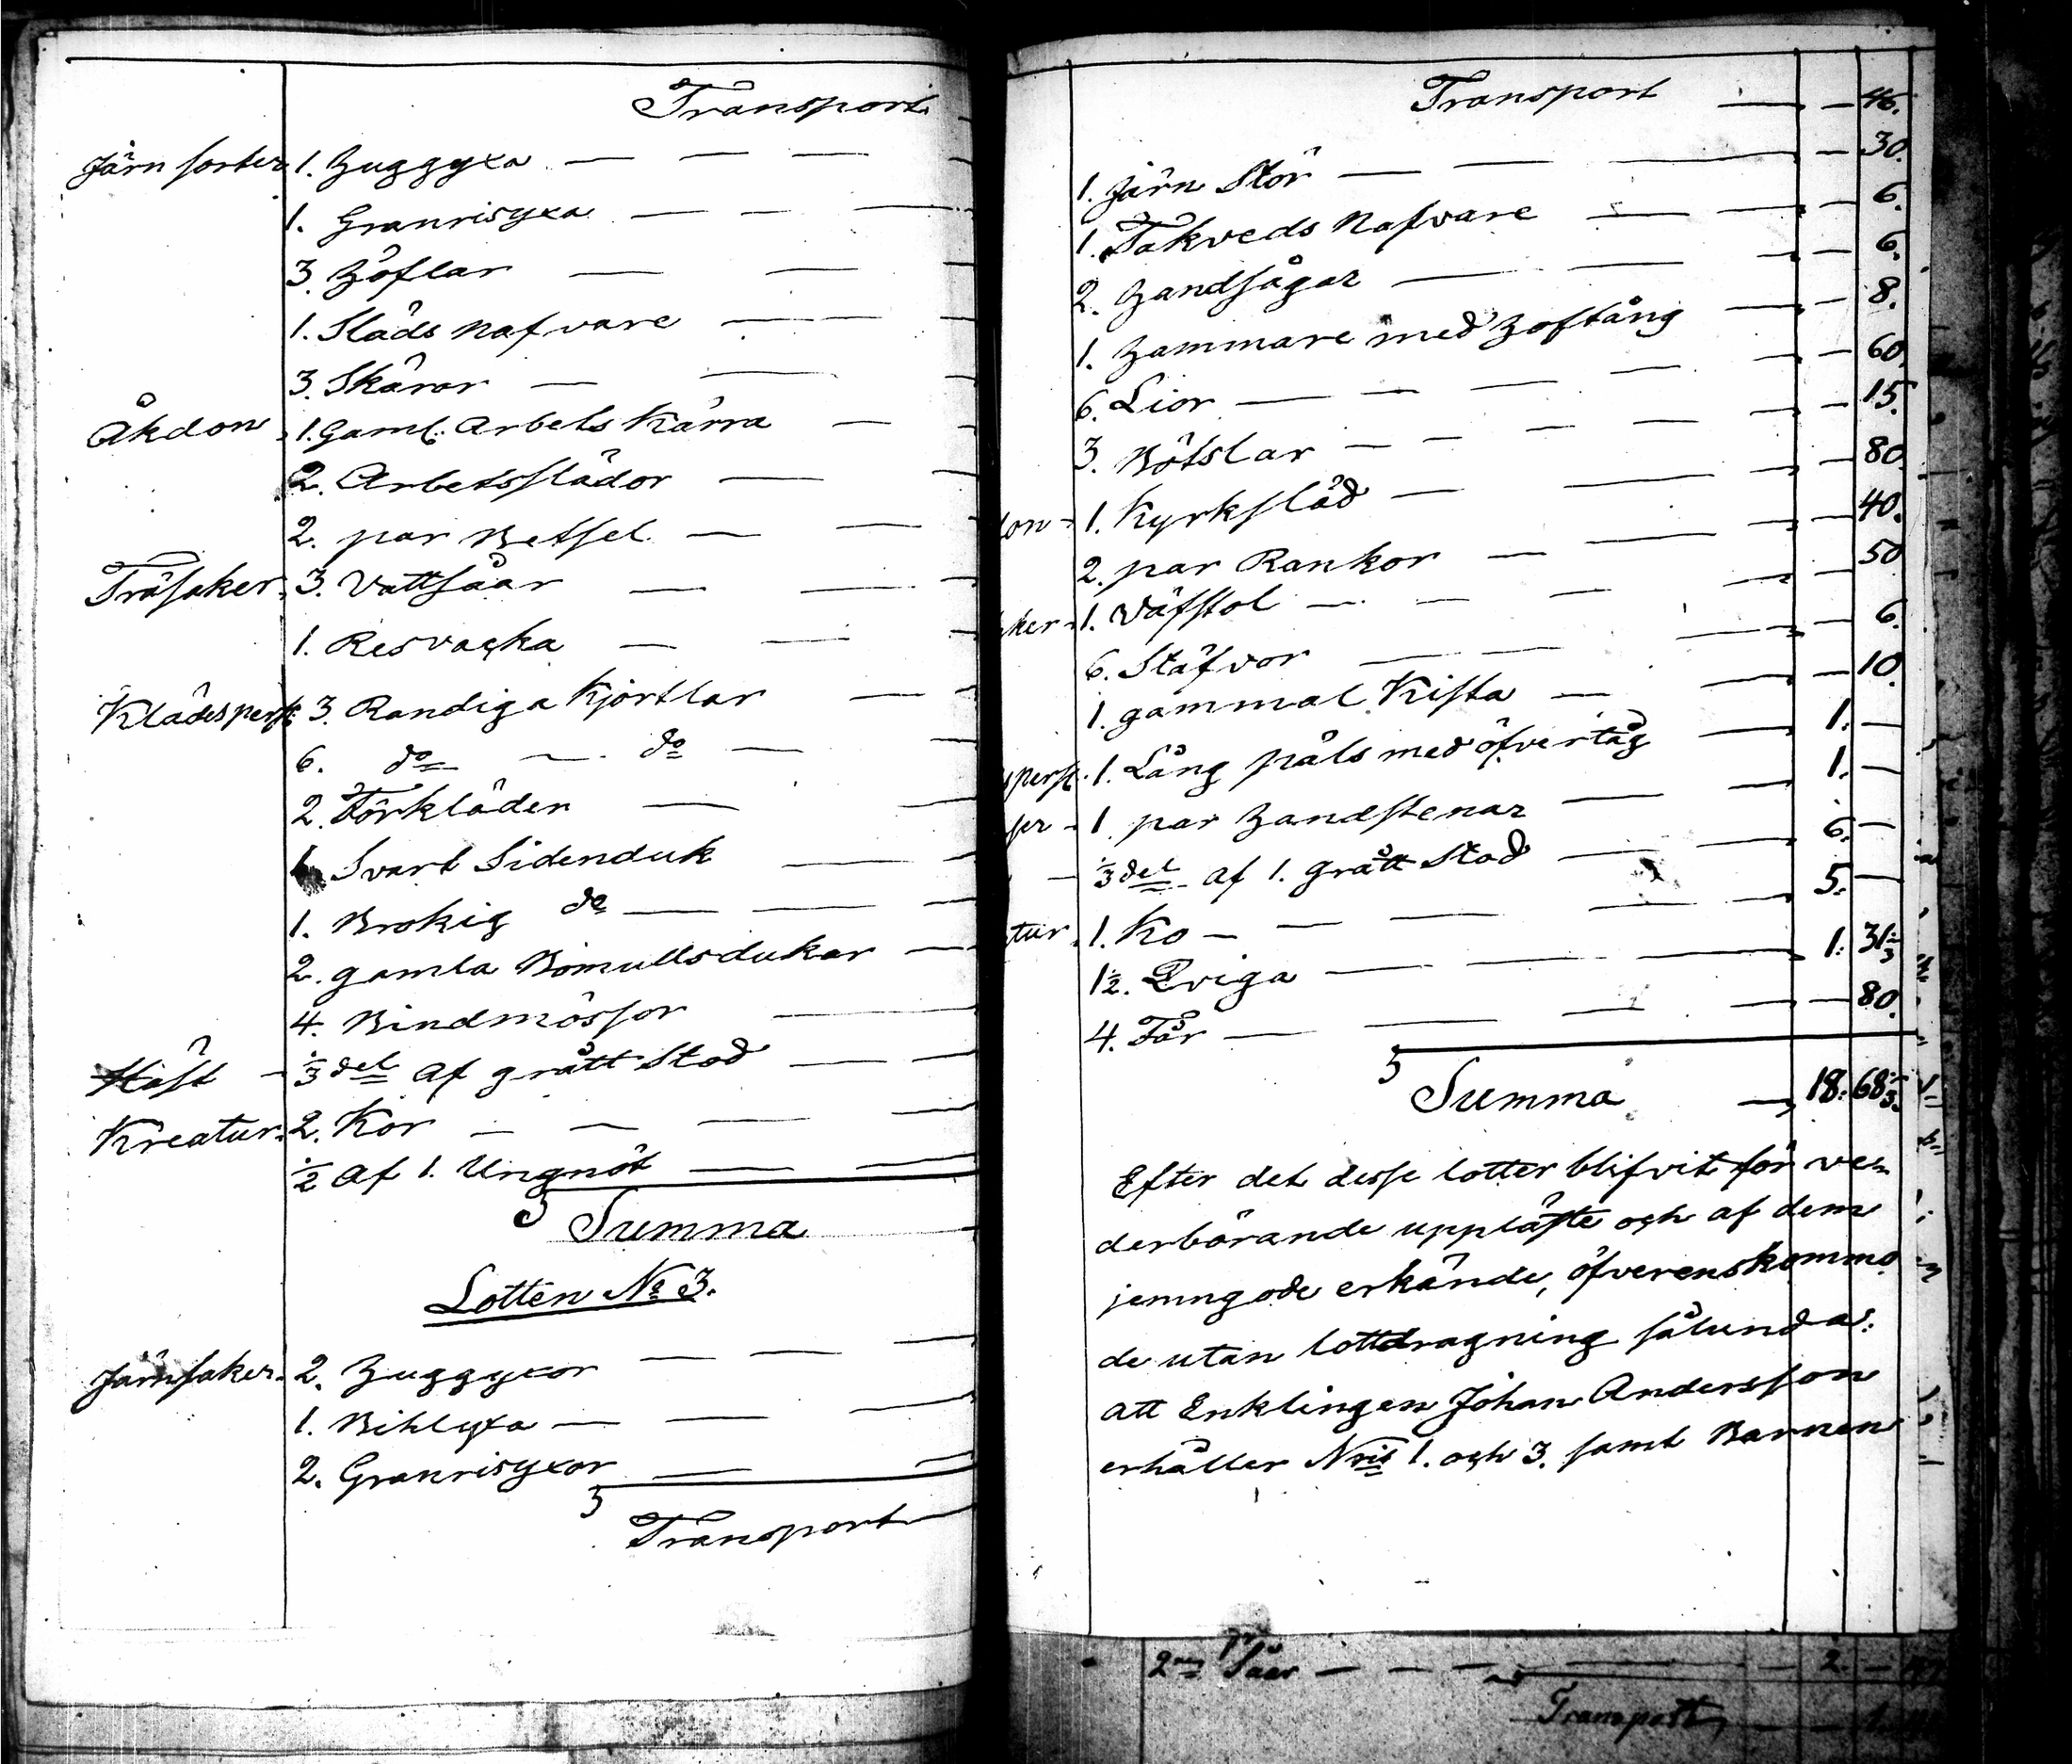 Transport
Järn sorter 1. Huggyxa
1. Granrisyxa
3. Höflar
1. Släds nafvare
3. Skäror
Åkdon 1. Gaml: Arbets Kärra
2. Arbetsslädor
2. par Betsel
Träsaker. 3. Vattsåar
1. Resvacka
Klädespers: 3. Randiga Kjortlar
6. do do
2. Förkläden
1. Svart Sidenduk
1. Brokig do
2. gamla Bomullsdukar
4. Bindmössor
Häst 1/3 del af grått Stod
Kreatur. 2. Kor
1/2 af 1. Ungnöt
Summa
Lotten No 3.
Järnsaker. 2. Huggyxor
1. Bihlyxa
2. Granrisyxor
Transport
Transport — 46.
1. Järn Stör — 30.
1. Takveds nafvare — 6.
2. Handsågar — 6.
1. Hammare med Hoftång — 8.
6. Lior — 60.
3. Bötslar — 15.
don 1. Kyrksläd — 80.
2. par Rankor — 40.
aker 1. Väfstol — 50
6. Stäfvor — 6.
1. gammal Kista — 10.
spers: 1. Lång päls med öfvertåg 1. —
ser 1 par Handstenar 1. —
1/3 del af 1. grått Stod 6. —
tur. 1. Ko 5. —
1 1/2. Qviga 1. 31 1/3
4. Får — 80.
Summa 18. 68 1/3.
Efter det desse lotter blifvit för ve-
derbörande uppläste och af dem
jemngode erkände, öfverenskommo
de utan lottdragning sålunda:
att Enklingen Johan Andersson
erhåller Nris 1. och 3. samt Barnen
2ne Såar 2. —
Transport